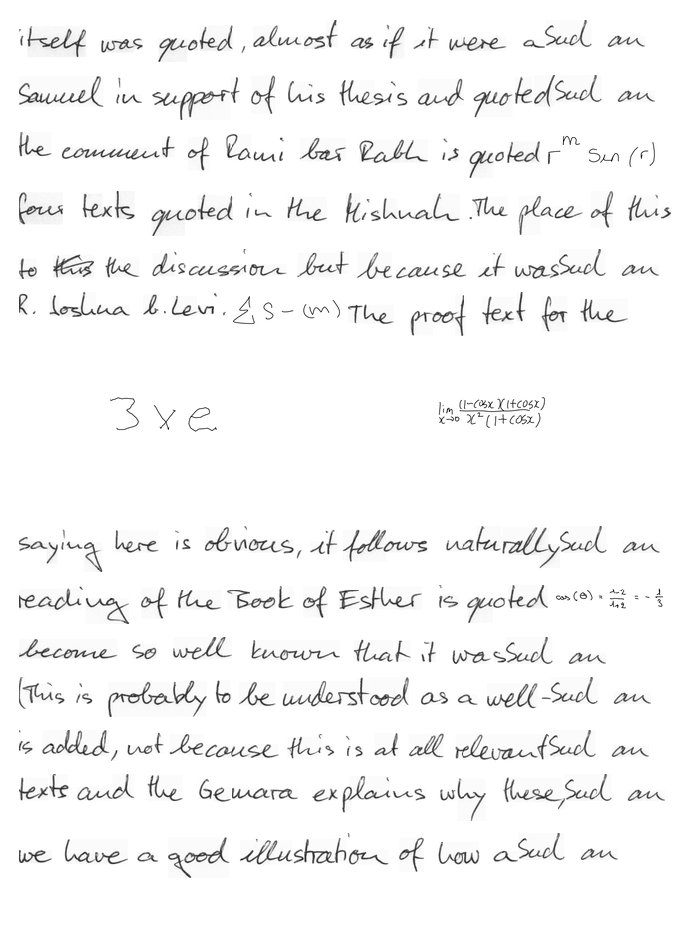 itself was quoted, almost as if it were a Sud an
Samuel in support of his thesis and quoted Sud an
the comment of Rami bar Rabh is quoted r^m sin (r)
four texts quoted in the Mishnah. The place of this
to this the discussion but because it was Sud an
R. Joshua b. Levi. ∑ S - (m) The proof text for the
3 x e
lim x→0 (1-cosx)(1+cosx) / x²(1+cosx)
saying here is obvious, it follows naturally Sud an
reading of the Book of Esther is quoted cos(θ) = 1-2 / 1+2 = - 1/3
become so well known that it was Sud an
(This is probably to be understood as a well- Sud an
is added, not because this is at all relevant Sud an
texts and the Gemara explains why these, Sud an
we have a good illustration of how a Sud an